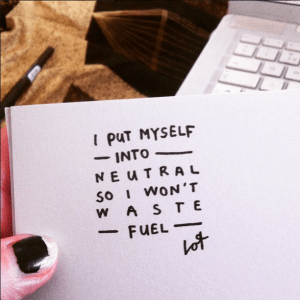 I PUT MYSELF
— INTO —
NEUTRAL
SO I WON'T
WASTE
— FUEL —
lot